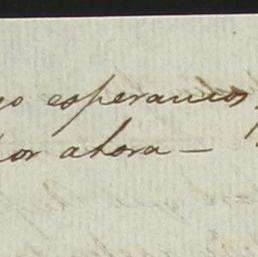 esperamos
por ahora —